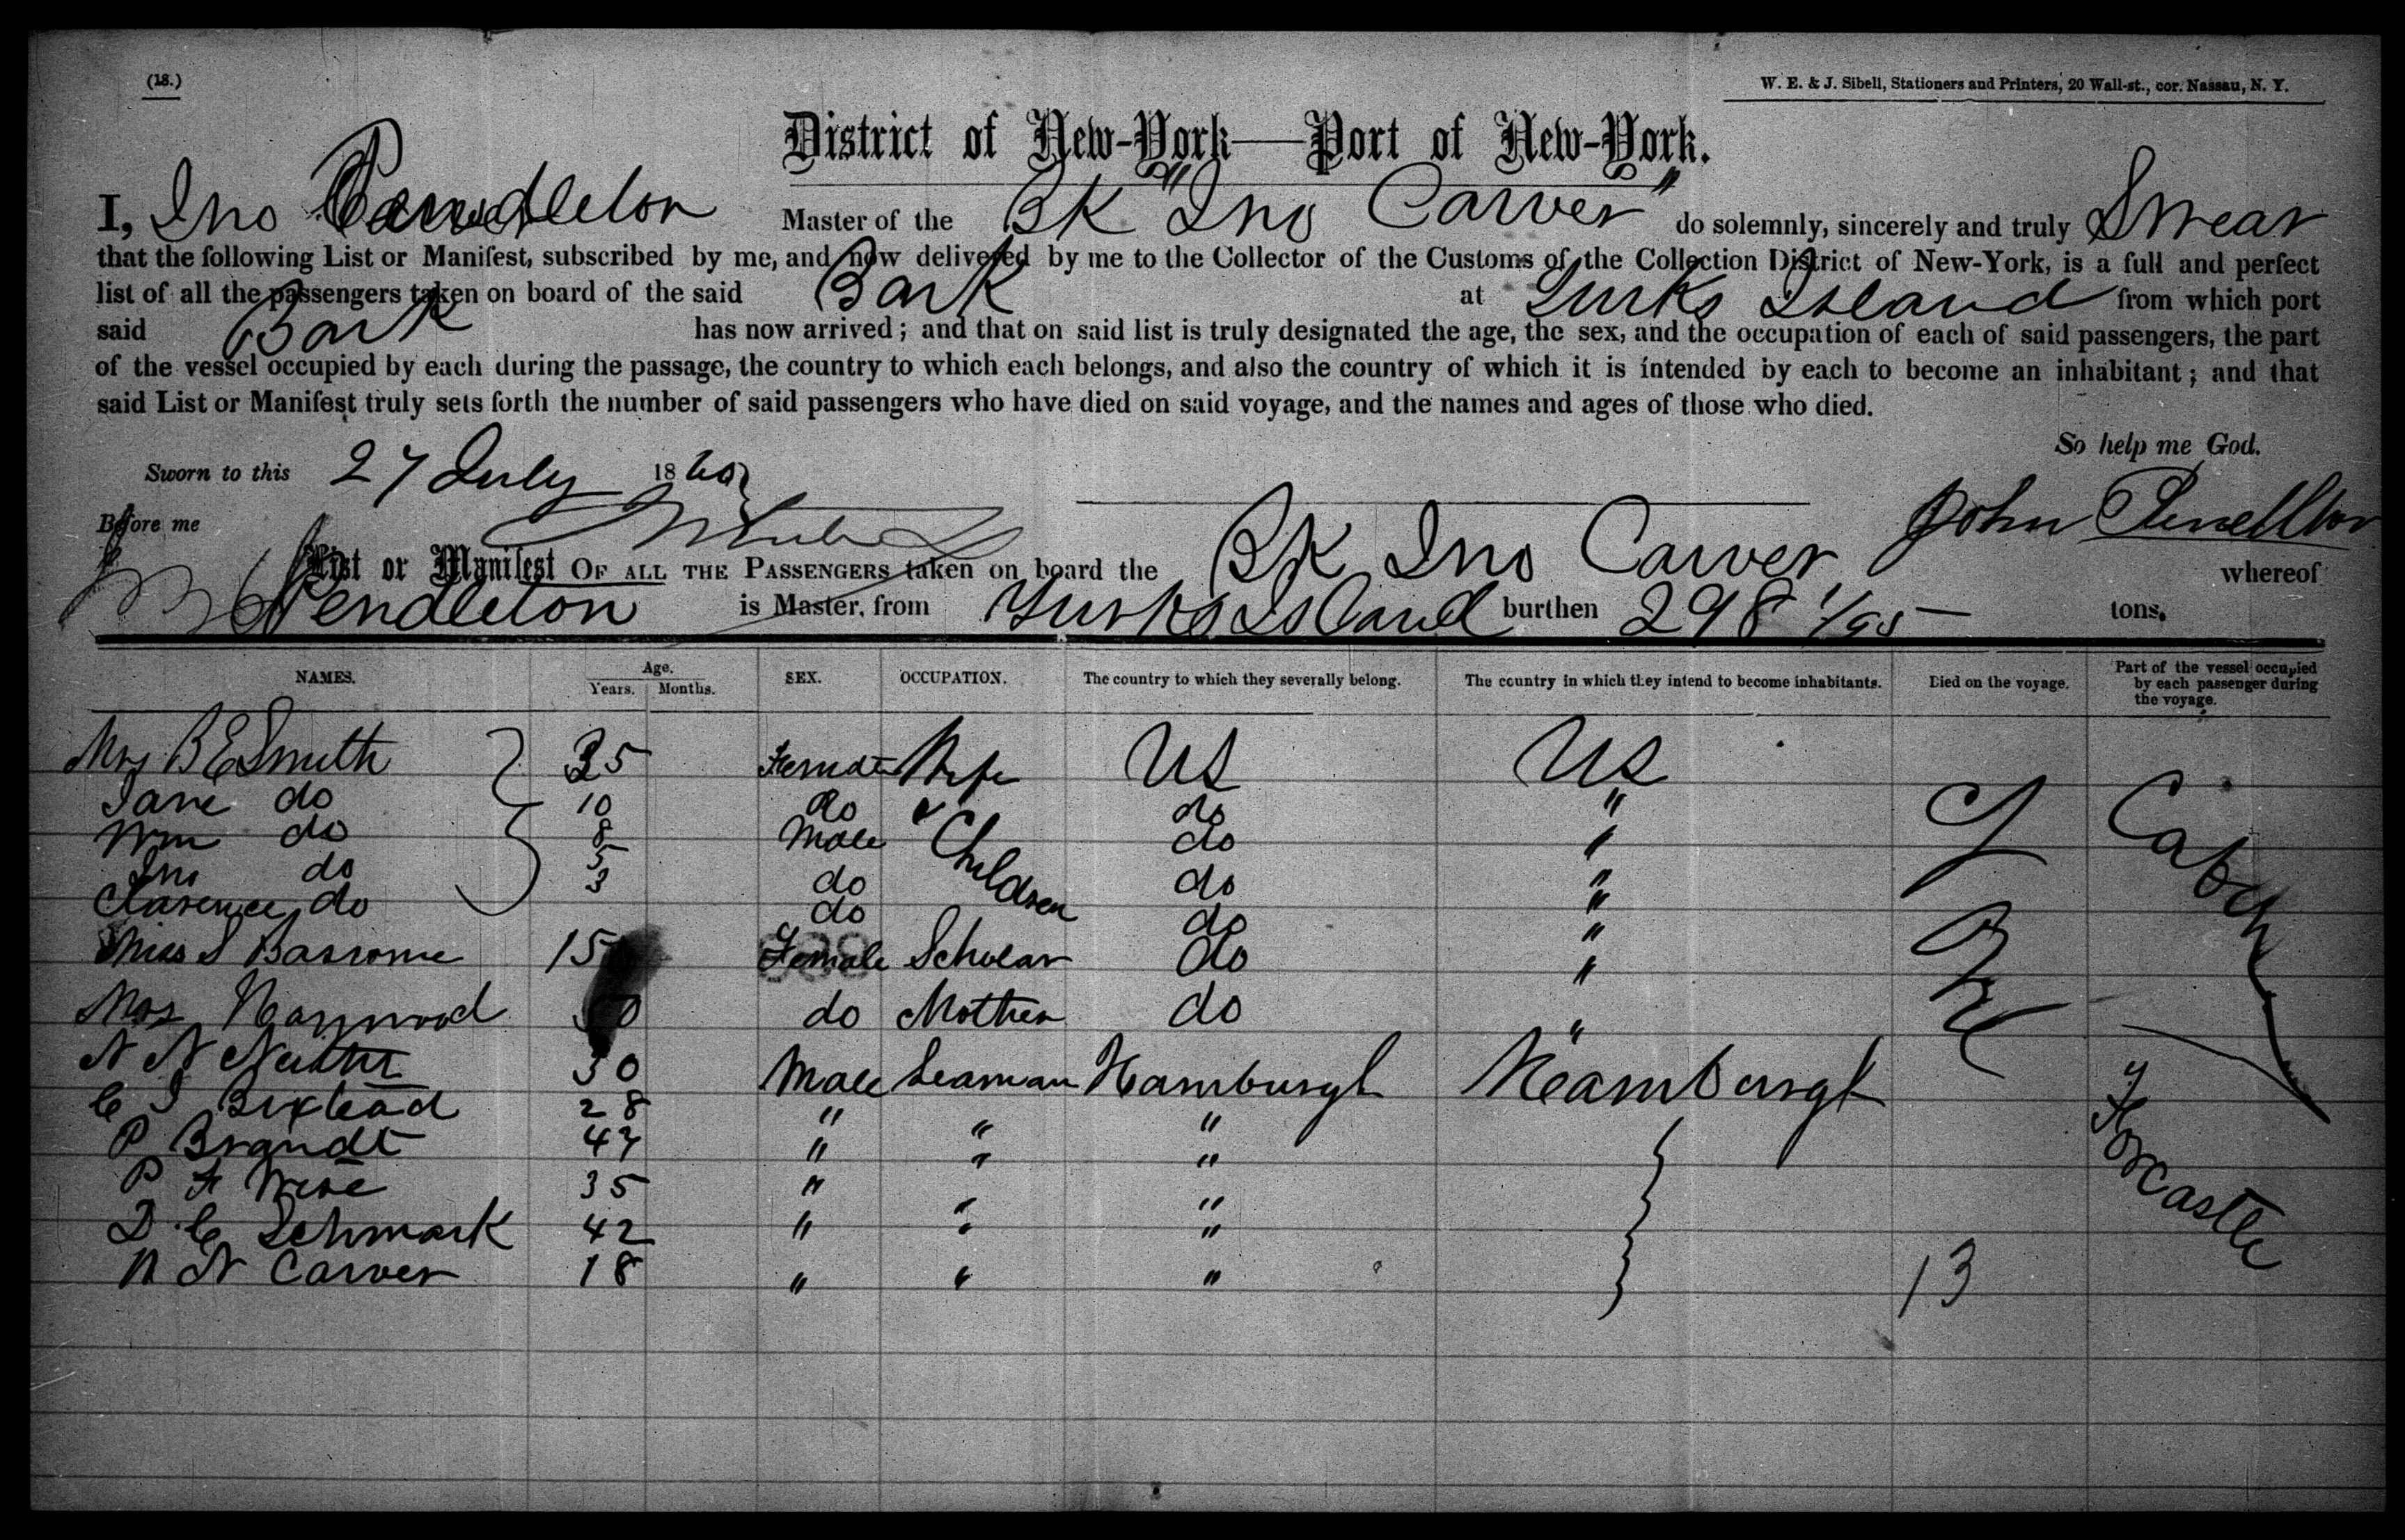 (18.)
W. E. & J. Sibell, Stationers and Printers, 20 Wall-st., cor. Nassau, N. Y.
District of New-York—Port of New-York.
I, Jno Pendleton Master of the Bk "Jno Carver" do solemnly, sincerely and truly Swear
that the following List or Manifest, subscribed by me, and now delivered by me to the Collector of the Customs of the Collection District of New-York, is a full and perfect
list of all the passengers taken on board of the said Bark at Turks Island from which port
said Bark has now arrived; and that on said list is truly designated the age, the sex, and the occupation of each of said passengers, the part
of the vessel occupied by each during the passage, the country to which each belongs, and also the country of which it is intended by each to become an inhabitant; and that
said List or Manifest truly sets forth the number of said passengers who have died on said voyage, and the names and ages of those who died.
So help me God.
Sworn to this 27 July 1860
Before me
John Pendleton
List or Manifest OF ALL THE PASSENGERS taken on board the Bk Jno Carver whereof
Pendleton is Master, from Turks Island burthen 298 1/95 tons.
NAMES. Age. Years. Months. SEX. OCCUPATION. The country to which they severally belong. The country in which they intend to become inhabitants. Died on the voyage. Part of the vessel occupied by each passenger during the voyage.
Mrs B E Smith 35 Female Wife US US
Jane do 10 do & Children do "
Wm do 8 Male do "
Jno do 5 do do "
Clarence do 3 do do "
Miss S 15 Female Scholar do "
Mrs 50 do Mother do "
Cabin
N N 30 Male Seaman Hamburgh Hamburgh
C J 28 " " "
P Brandt 47 " " "
P F Wise 35 " " "
D C Schmark 42 " " "
N N Carver 18 " " "
Forcastle
13